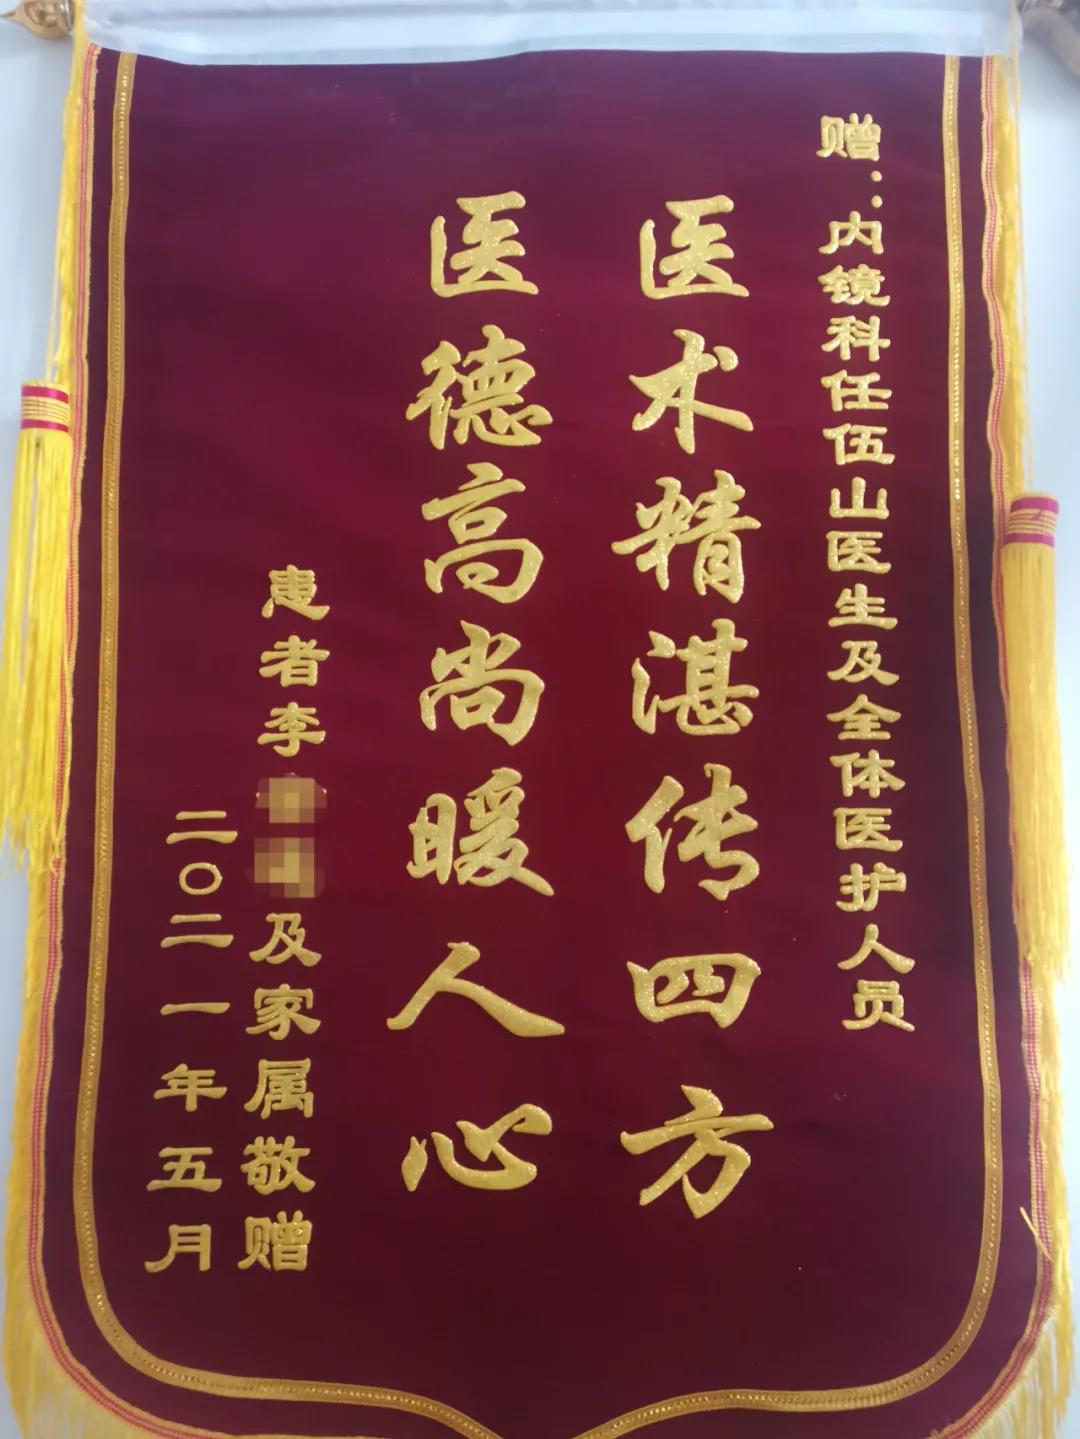 赠：内镜科任伍山医生及全体医护人员
医术精湛传四方
医德高尚暖人心
患者李及家属敬赠
二〇二一年五月